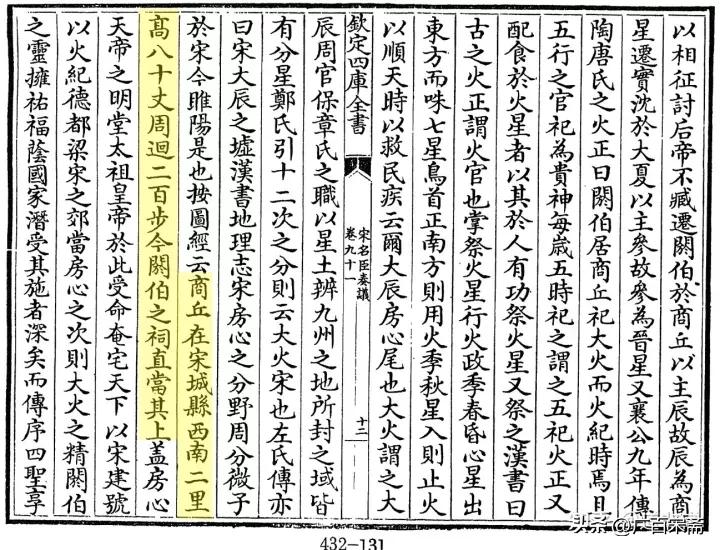 以相征討后帝不臧遷閼伯於商丘以主辰故辰為商
星遷實沈於大夏以主參故參為晉星又襄公九年傳
陶唐氏之火正曰閼伯居商丘祀大火而火紀時焉且
五行之官祀為貴神每歲五時祀之謂之五祀火正又
配食於火星者以其於人有功祭火星又祭之漢書曰
古之火正謂火官也掌祭火星行火政季春昏心星出
東方而咮七星鳥首正南方則用火季秋星入則止火
以順天時以救民疾云爾大辰房心尾也大火謂之大
欽定四庫全書
宋名臣奏議
卷九十一
十二
辰周官保章氏之職以星土辨九州之地所封之域皆
有分星鄭氏引十二次之分則云大火宋也左氏傳亦
曰宋大辰之墟漢書地理志宋房心之分野周分微子
於宋今睢陽是也按圖經云商丘在宋城縣西南二里
高八十丈周迴二百步今閼伯之祠直當其上蓋房心
天帝之明堂太祖皇帝於此受命奄宅天下以宋建號
以火紀德都梁宋之郊當房心之次則大火之精閼伯
之靈擁祐福蔭國家潛受其施者深矣而傳序四聖享
432-131
头条@广百宋斋